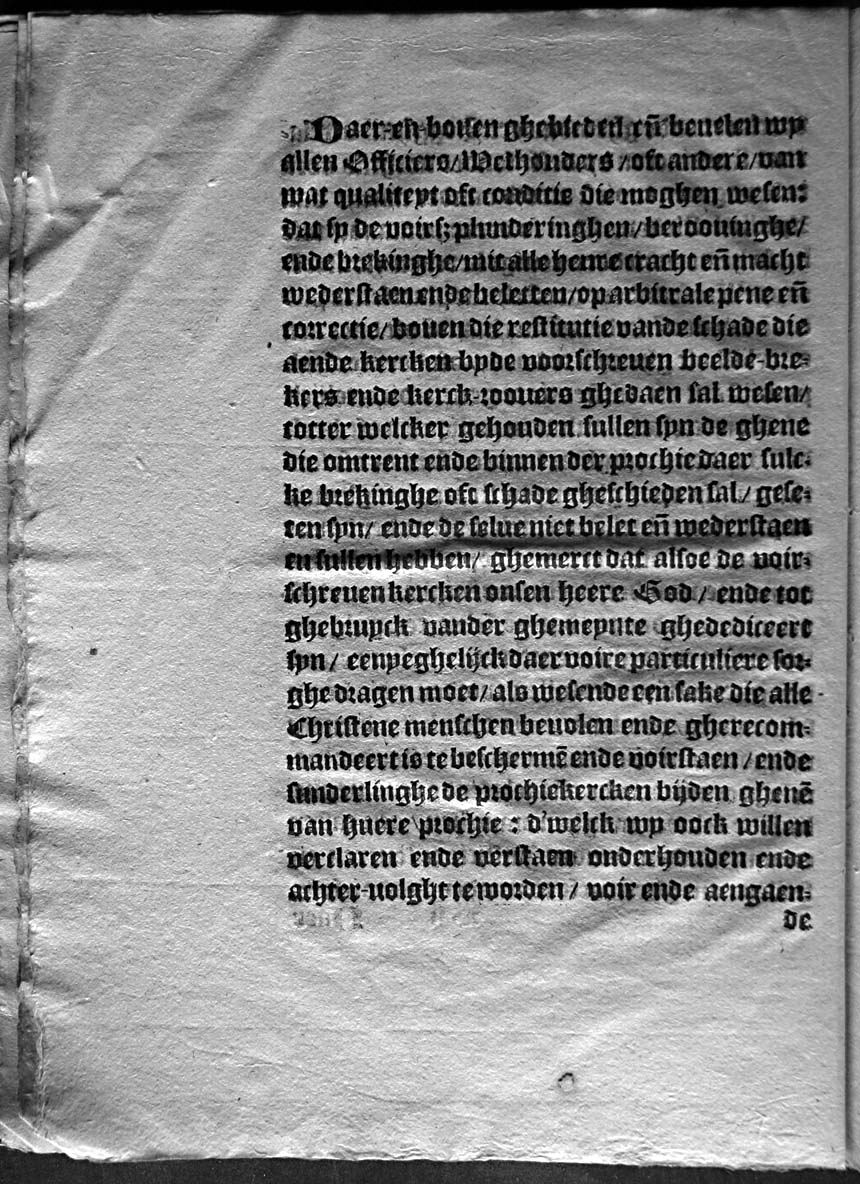 Daer-en-bouen ghebieden eñ beuelen wy
allen Officiers/Wethouders/oft andere/van
wat qualiteyt oft conditie die moghen wesen:
dat sy de voirs; plunderinghen/beroouinghe/
ende brekinghe/mit alle heure cracht eñ macht
wederstaen ende beletten/op arbitrale pene eñ
correctie/bouen die restitutie vande schade die
aende kercken byde voorschreuen beelde-bre-
kers ende kerck-roouers ghedaen sal wesen/
totter welcker gehouden sullen syn de ghene
die omtrent ende binnen der prochie daer sulc-
ke brekinghe oft schade gheschieden sal/gese-
ten syn/ ende de selue niet belet eñ wederstaen
en sullen hebben/ ghemerct dat alsoe de voir-
schreuen kercken onsen heere God/ ende tot
ghebruyck vander ghemeynte ghedediceert
syn/ eenyeghelijck daer voire particuliere sor-
ghe dragen moet/als wesende een sake die alle
Christene menschen beuolen ende gherecom-
mandeert is te beschermē ende voirstaen/ende
sunderlinghe de prochiekercken bijden ghenē
van huere prochie : d'welck wy oock willen
verclaren ende verstaen onderhouden ende
achter-uolght te worden/ voir ende aengaen-
de